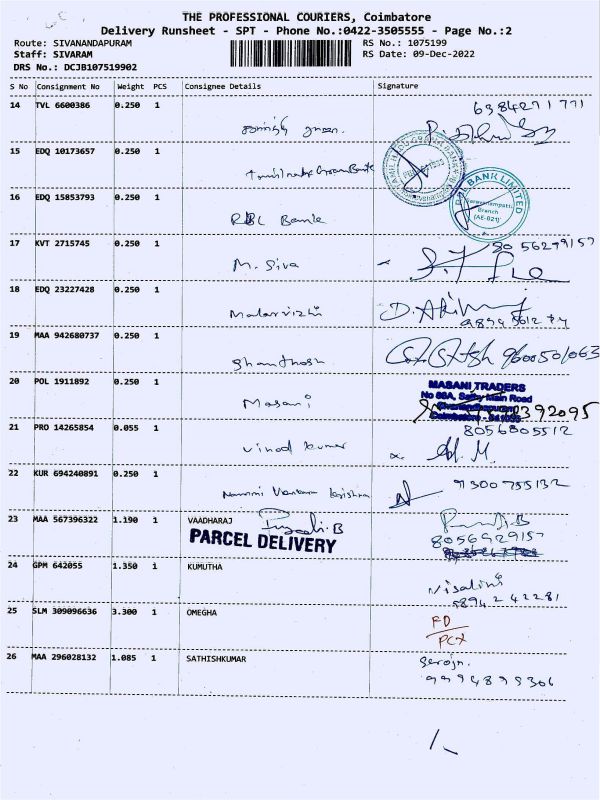 THE PROFESSIONAL COURIERS, Coimbatore
Delivery Runsheet - SPT - Phone No.:0422-3505555 - Page No.:2
Route: SIVANANDAPURAM
RS No.: 1075199
Staff: SIVARAM
RS Date: 09-Dec-2022
DRS No.: DCJB107519902
S No Consignment No Weight PCS Consignee Details Signature
14 TVL 6600386 0.250 1
6384271771
15 EDQ 10173657 0.250 1
Tamilnadu Grama Bank
16 EDQ 15853793 0.250 1
RBL Bank
RBL BANK LIMITED
Branch
(AE-821)
17 KVT 2715745 0.250 1
8056279157
M. Siva
18 EDQ 23227428 0.250 1
Malarvizhi
19 MAA 942680737 0.250 1
Shanthosh
9600501063
20 POL 1911892 0.250 1
Masani
MASANI TRADERS
No 88A, Sathy Main Road
21 PRO 14265854 0.055 1
8056805512
Vinod kumar
22 KUR 694240891 0.250 1
9300755132
23 MAA 567396322 1.190 1 VAADHARAJ
PARCEL DELIVERY
8056929157
24 GPM 642055 1.350 1 KUMUTHA
Visalini
25 SLM 309096636 3.300 1 OMEGHA
26 MAA 296028132 1.085 1 SATHISHKUMAR
Saroja.
9994895306